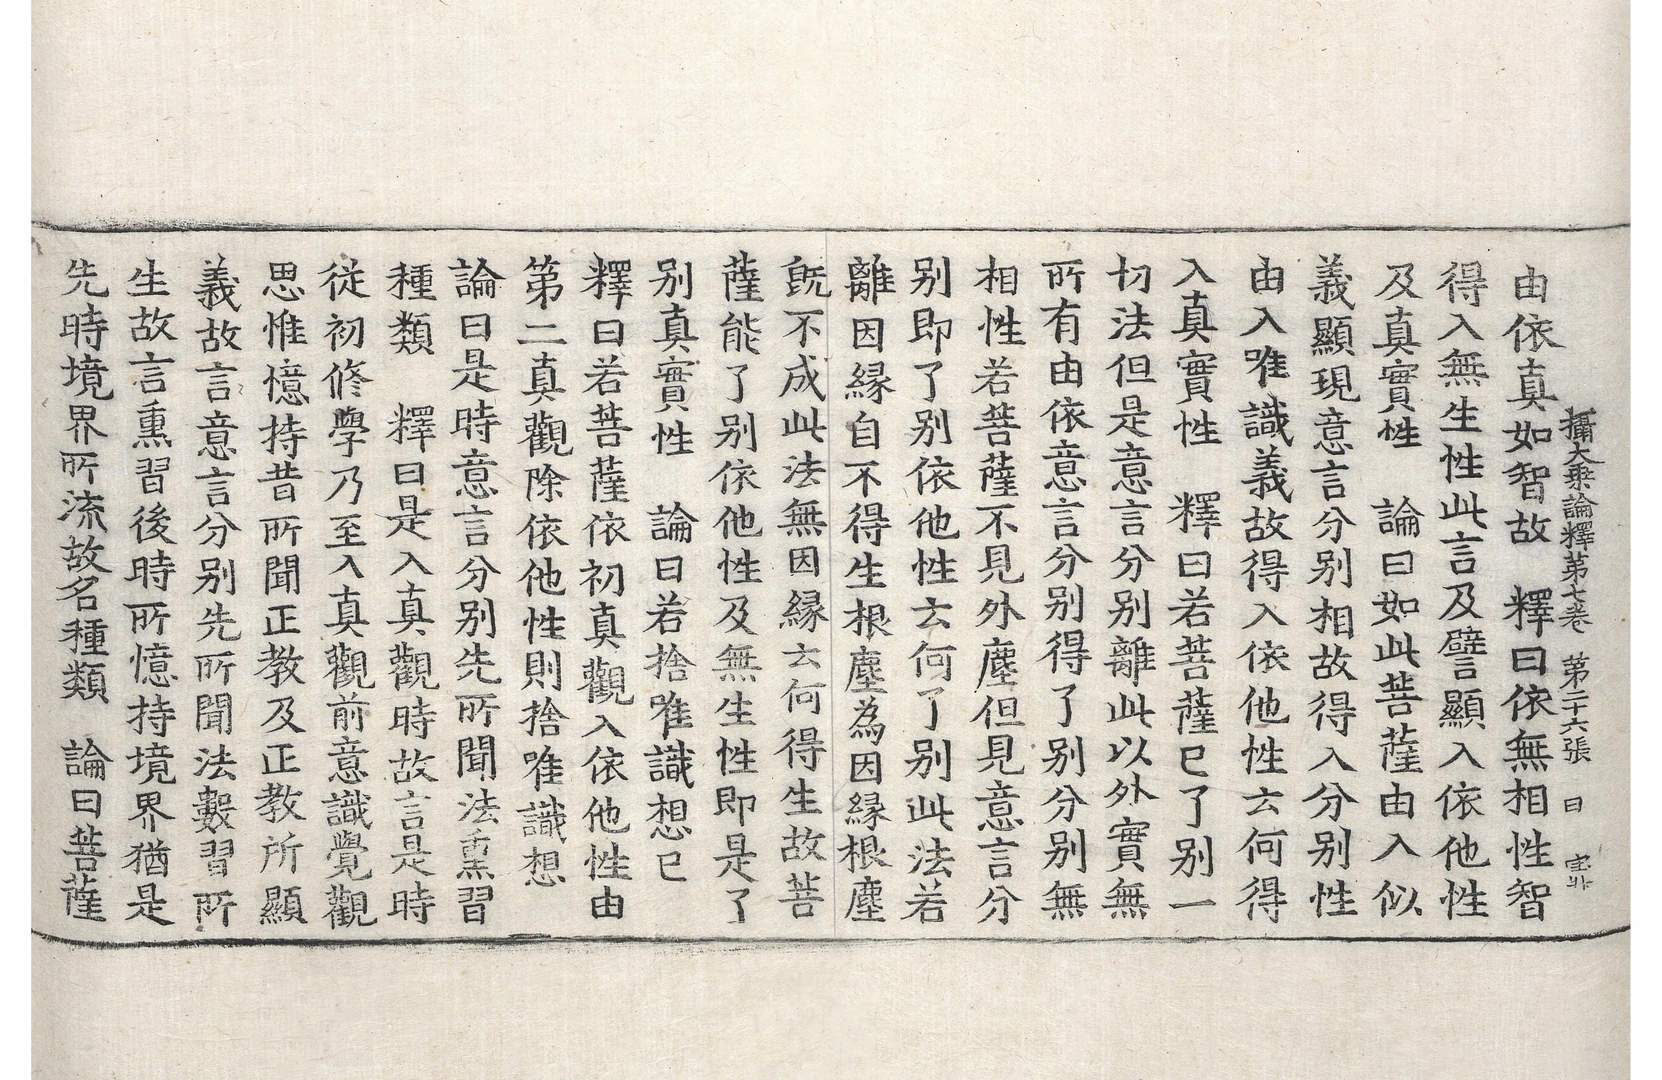 攝大乗論釋第七卷 第二十六張 曰
由依真如智故 釋曰依無相性智
得入無生性此言及譬顯入依他性
及真實性 論曰如此菩薩由入似
義顯現意言分別相故得入分別性
由入唯識義故得入依他性云何得
入真實性 釋曰若菩薩已了別一
切法但是意言分別離此以外實無
所有由依意言分別得了別分別無
相性若菩薩不見外塵但見意言分
別即了別依他性云何了別此法若
離因縁自不得生根塵為因縁根塵
既不成此法無因縁云何得生故菩
薩能了別依他性及無生性即是了
別真實性 論曰若捨唯識想已
釋曰若菩薩依初真觀入依他性由
第二真觀除依他性則捨唯識想
論曰是時意言分別先所聞法熏習
種類 釋曰是入真觀時故言是時
從初修學乃至入真觀前意識覺觀
思惟憶持昔所聞正教及正教所顯
義故言意言分別先所聞法數習所
生故言熏習後時所憶持境界猶是
先時境界所流故名種類 論曰菩薩